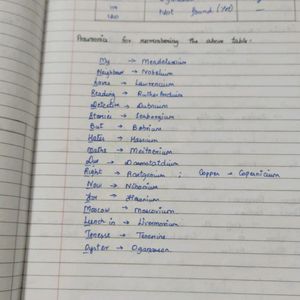 110
Not found (Yet)
Pneumonic for remembering the above table:
My → Mendelevium
Neighbour → Nobelium
Loves → Lawrencium
Reading → Rutherfordium
Detective → Dubnium
Stories → Seaborgium
But → Bohrium
Hates → Hassium
Maths → Meitnerium
Due → Darmstadtium
Right → Roetgenium ; Copper → Copernicium
Now → Nihonium
Moscow → Moscovium
Lunch in → Livermorium
Tenesse → Tenesine
Oyster → Oganesson